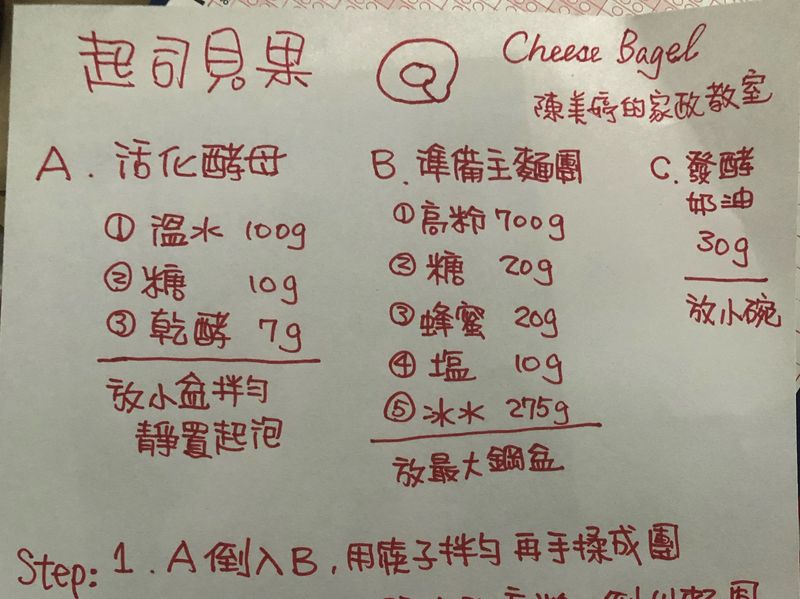 起司貝果
Cheese Bagel
陳美婷的家政教室
A. 活化酵母
① 溫水 100g
② 糖 10g
③ 乾酵 7g
放小盆拌勻
靜置起泡
B. 準備主麵團
① 高粉 700g
② 糖 20g
③ 蜂蜜 20g
④ 塩 10g
⑤ 冰水 275g
放最大鋼盆
C. 發酵
奶油
30g
放小碗
Step: 1. A倒入B, 用筷子拌勻 再手揉成團